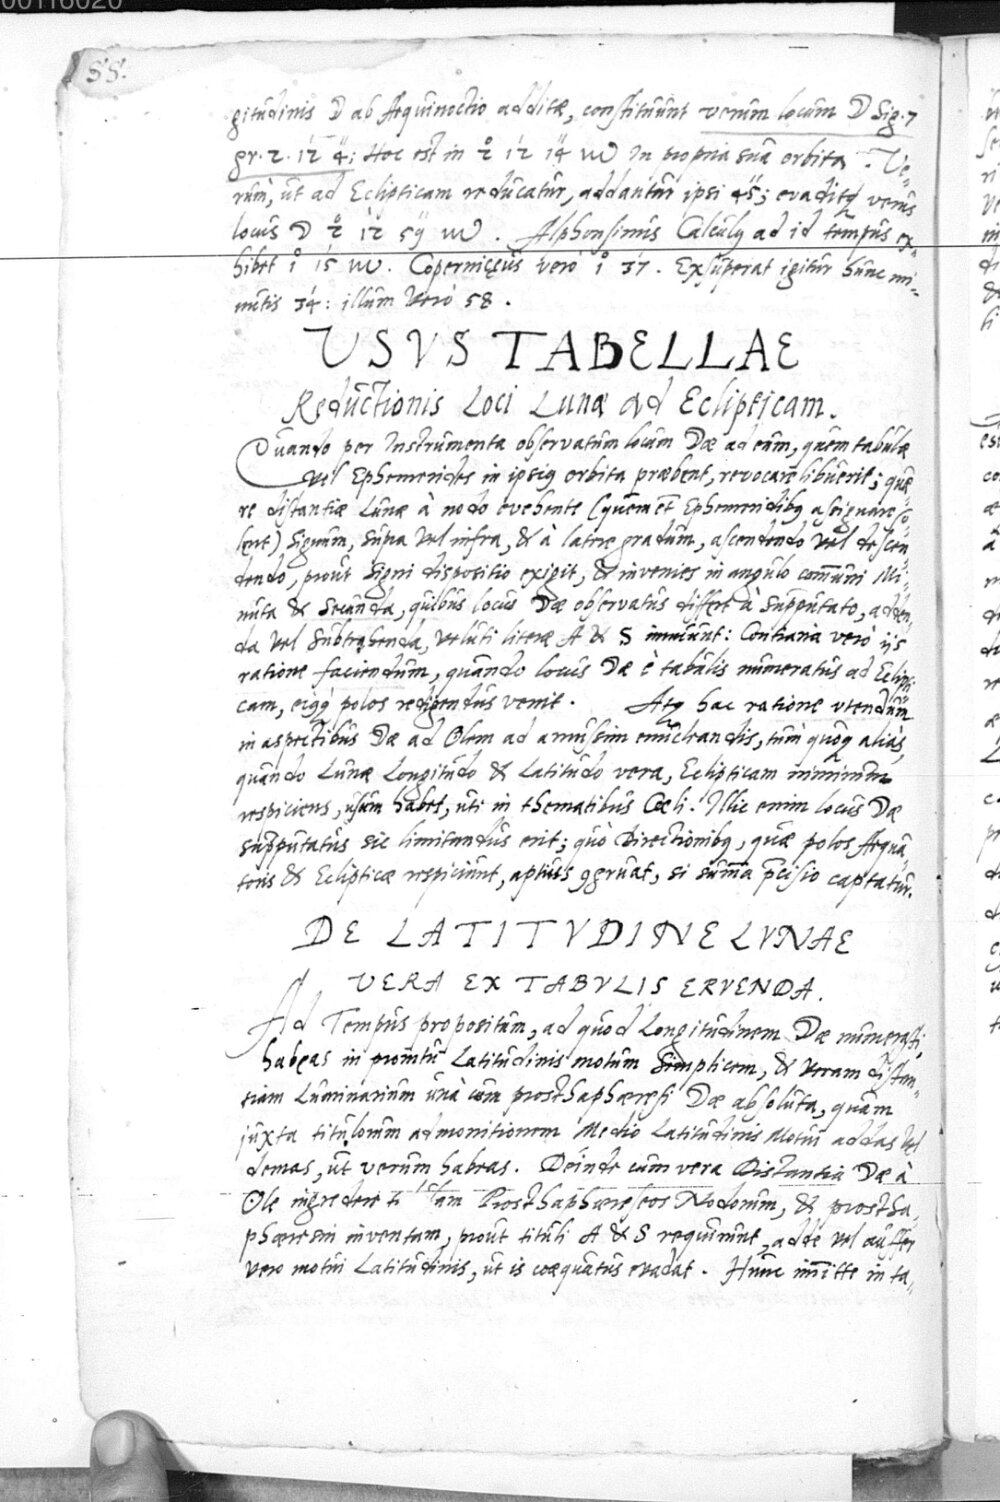 00116020
55.
gitudinis ☽ ab Aequinoctio additae, constituunt verum locum ☽ Sig. 7
gr. 2. 12 4; Hoc est in 2 12 14 ♏ In propria sua orbita. Ve-
rum, ut ad Eclipticam reducatur, addantur ipsi 45; evaditq verus
locus ☽ 2 12 59 ♏. Alphonsinus Calculus ad id tempus ex-
hibet 1 15 ♏. Copernicęus vero 1 37. Exsuperat igitur hunc mi-
nutis 34: illum vero 58.
USVS TABELLAE
Reductionis Loci Lunae ad Eclipticam.
Quando per Instrumenta observatum locum ☽ae ad eum, quem tabulae
vel Ephemerides in ipsius orbita praebent, revocare libuerit; quae-
re distantiae Lunae à nodo evehente (quem et Ephemeridibus assignare so-
lent) Signum, supra vel infra, & à latere gradum, ascendendo vel descen
dendo, prout Signi dispositio exigit, & invenies in angulo communi Mi-
nuta & Secunda, quibus locus ☽ae observatus differt à supputato, adden-
da vel subtrahenda, veluti literae A & S innuunt: Contraria verò ijs
ratione faciendum, quando locus ☽ae è tabulis numeratus ad Eclipti
cam, eiqq polos redigendus venit. Atq hac ratione utendum
in aspectibus ☽ae ad Olem ad amussim enucleandis, tum quoq aliàs,
quando Lunae Longitudo & Latitudo vera, Eclipticam nimirum
respiciens, usum habet, uti in thematibus Coeli. Illic enim locus ☽ae
supputatus sic limitandus erit; quò Directionibq, quae polos Aequa-
toris & Eclipticae respiciunt, aptius 9gruat, si summa pcisio captatur.
DE LATITVDINE LVNAE
VERA EX TABVLIS ERVENDA.
Ad Tempus propositum, ad quod Longitudinem ☽ae numerasti,
habeas in promtu Latitudinis motum Simplicem, & veram distan-
tiam Luminarium unà cum prosthaphaeresi ☽ae absoluta, quam
juxta titulorum admonitionem Medio Latitudinis Motui addas vel
demas, ut verum habeas. Deinde cum vera Distantia ☽ae à
Ole ingredere Prosthaphaereseos Nodorum, & prostha-
phaeresin inventam, prout tituli A & S requirunt, adde vel aufer
vero motui Latitudinis, ut is coaequatus evadat. Hunc immitte in ta-